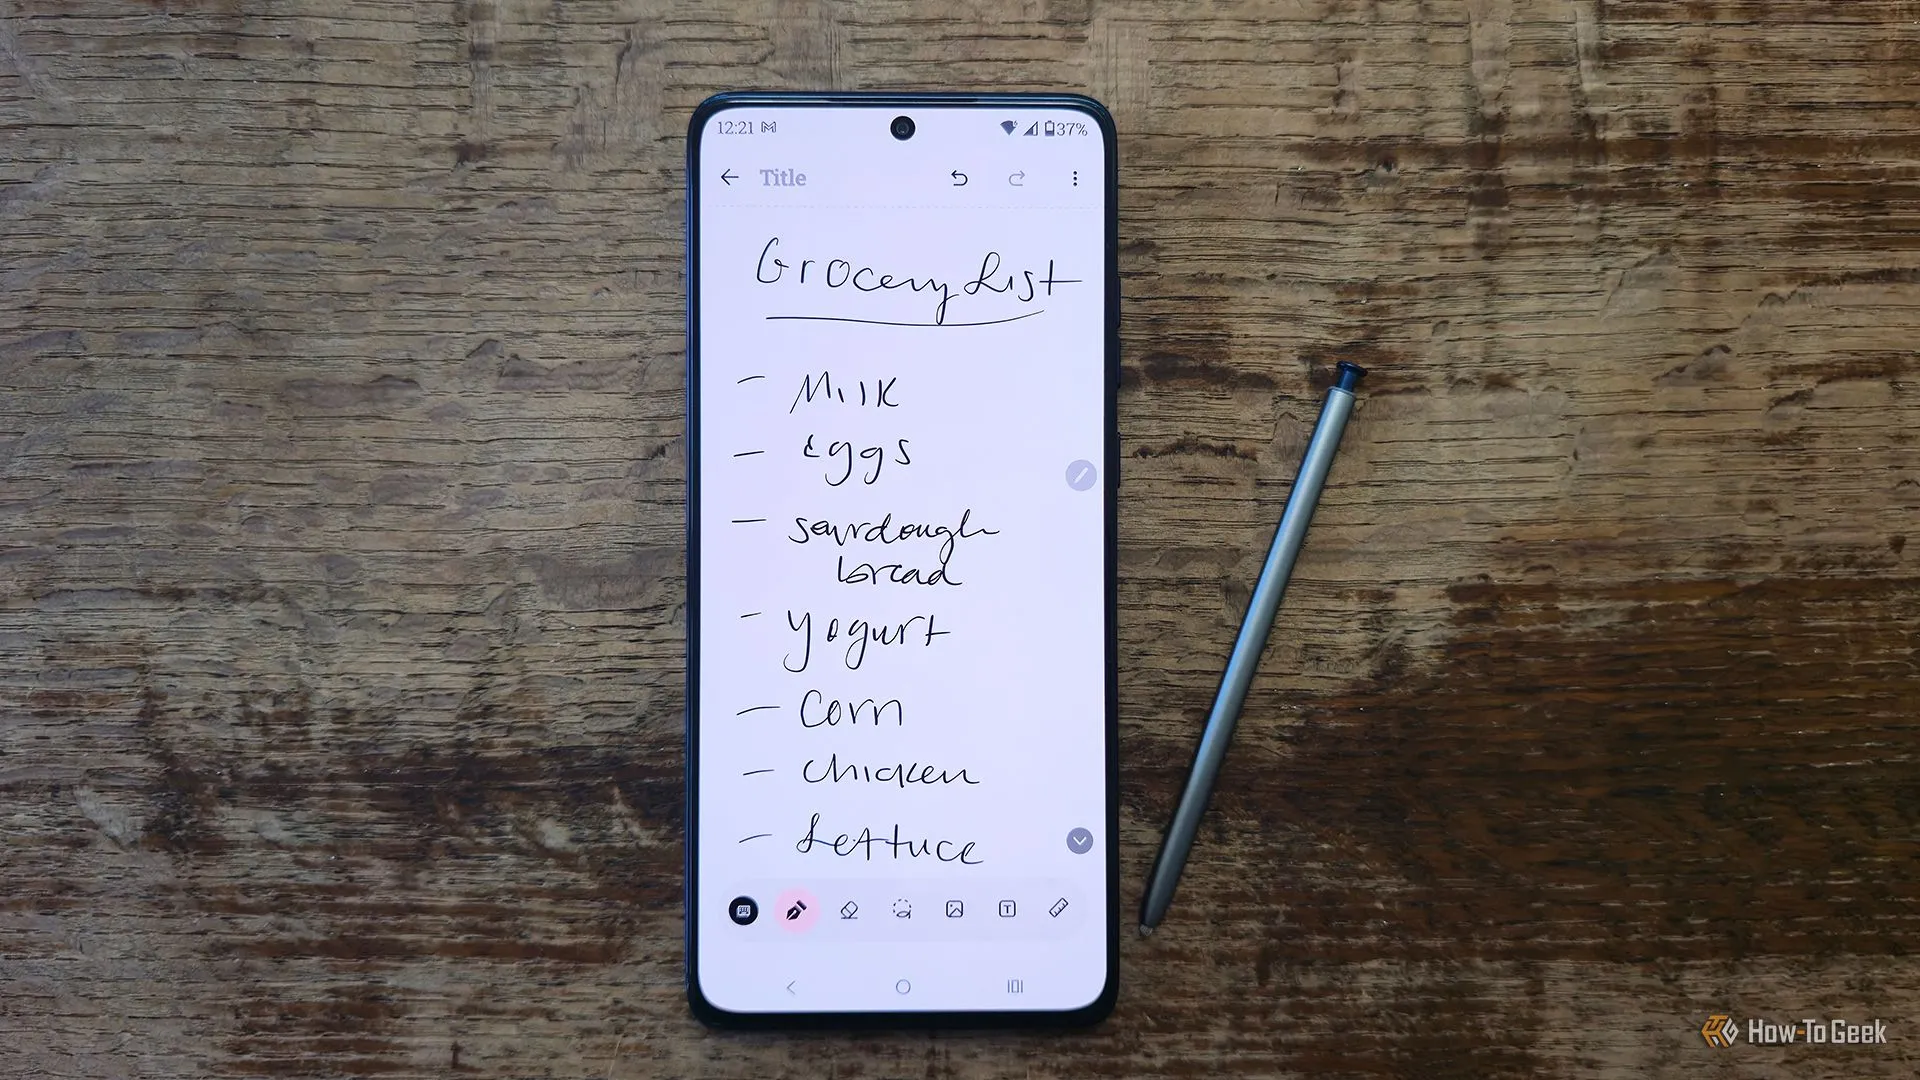 12:21 37%
Title
Grocery List
- Milk
- Eggs
- sourdough
bread
- yogurt
- Corn
- chicken
- Lettuce
T
How-To Geek